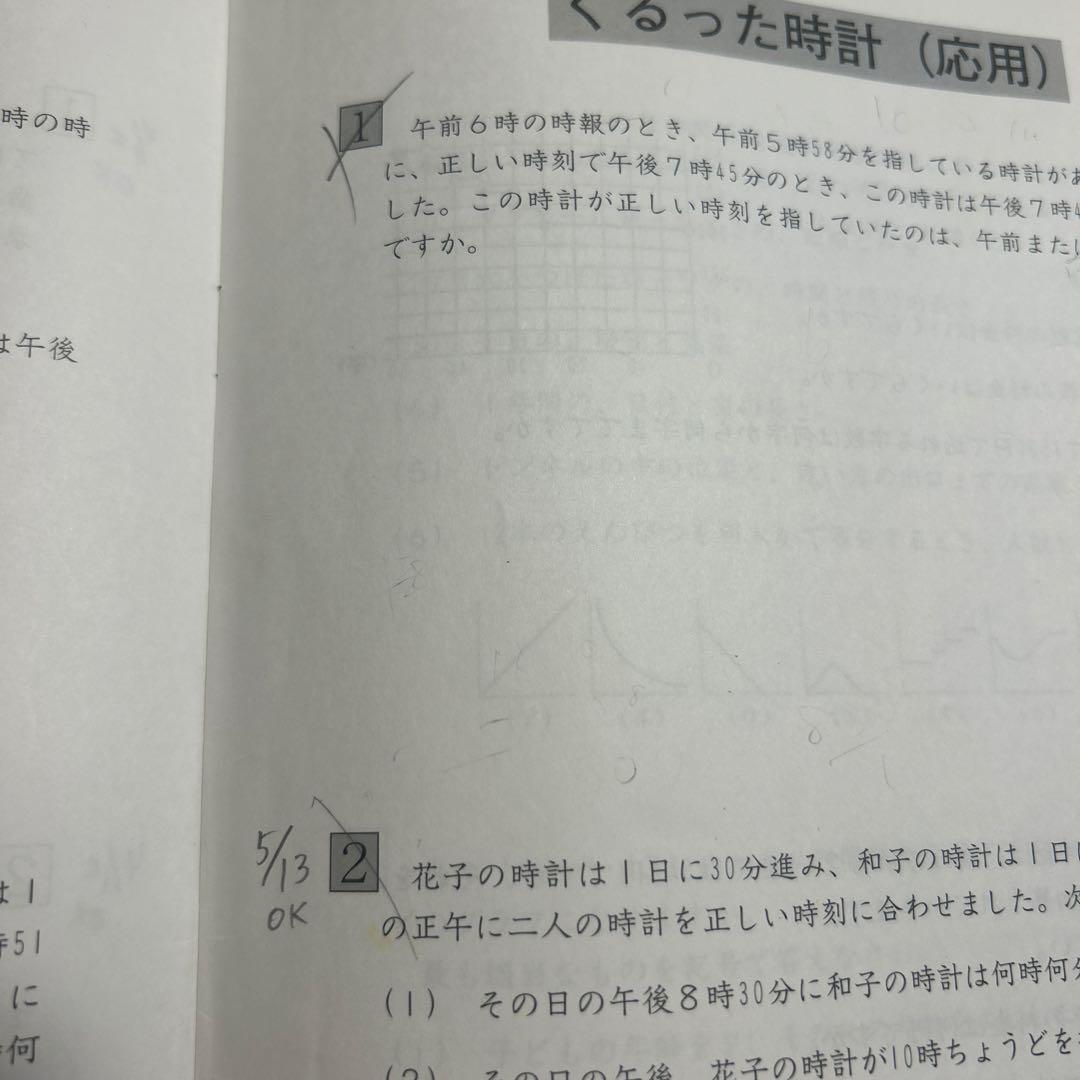 くるった時計（応用）
時の時
は午後
は1
時51
に
何
1 午前6時の時報のとき、午前5時58分を指している時計が
に、正しい時刻で午後7時45分のとき、この時計は午後7時4
した。この時計が正しい時刻を指していたのは、午前また
ですか。
5/13
OK
2 花子の時計は1日に30分進み、和子の時計は1日
の正午に二人の時計を正しい時刻に合わせました。次
(1) その日の午後8時30分に和子の時計は何時何分
(2) その日の午後、花子の時計が10時ちょうどを